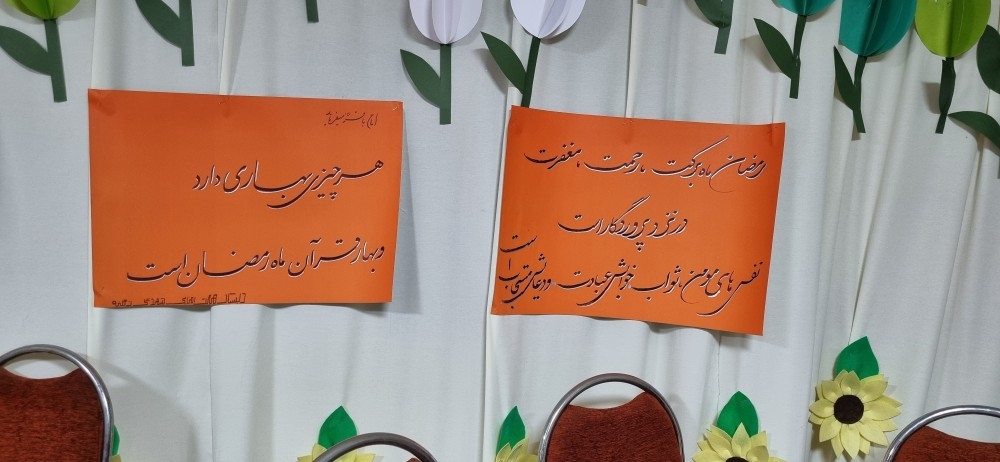 هر چیزی بهاری دارد
و بهار قرآن ماه رمضان است
رمضان ماه برکت، رحمت، مغفرت
در نزد پروردگار است
نفس های مومن، ثواب خوابش عبادت و دعایش مستجاب است